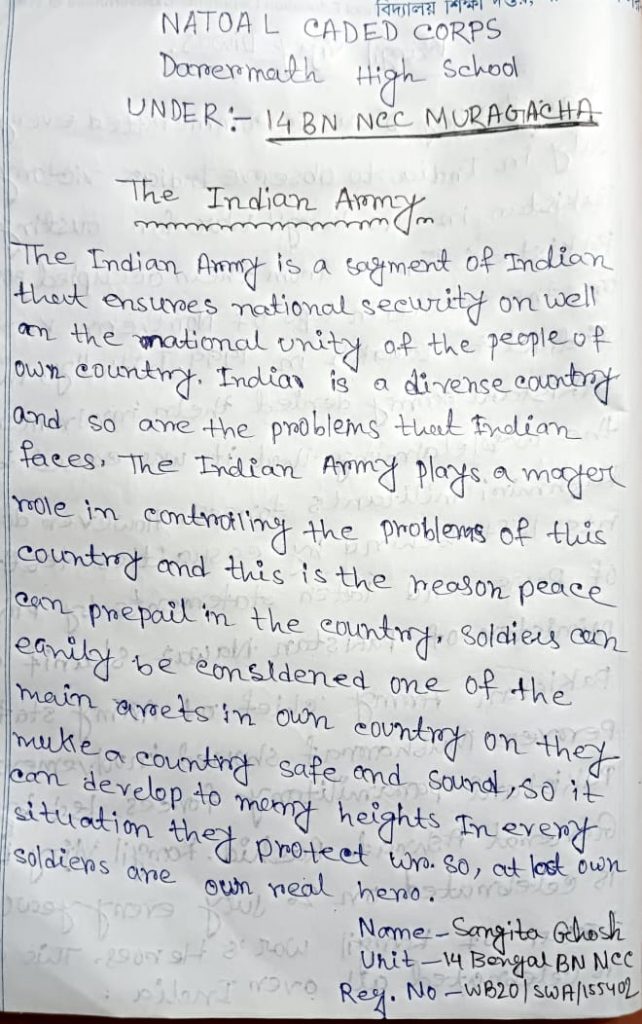 বিদ্যালয় শিক্ষা
NATOAL CADED CORPS
Danermath High School
UNDER :- 14 BN NCC MURAGACHA
The Indian Army
The Indian Army is a sagment of Indian
that ensures national security on well
an the national unity of the people of
own country. Indian is a diverse country
and so are the problems that Indian
faces. The Indian Army plays a mayer
role in controiling the problems of this
country and this is the reason peace
can prepail in the country. Soldiers can
eanily be considened one of the
main arrets in own country on they
make a country safe and sound, so it
can develop to meny heights In every
situation they protect wn. so, at last own
soldiers are own real hero.
Name - Sangita Ghosh
Unit - 14 Bengal BN NCC
Reg. No - WB20/SWA/155402